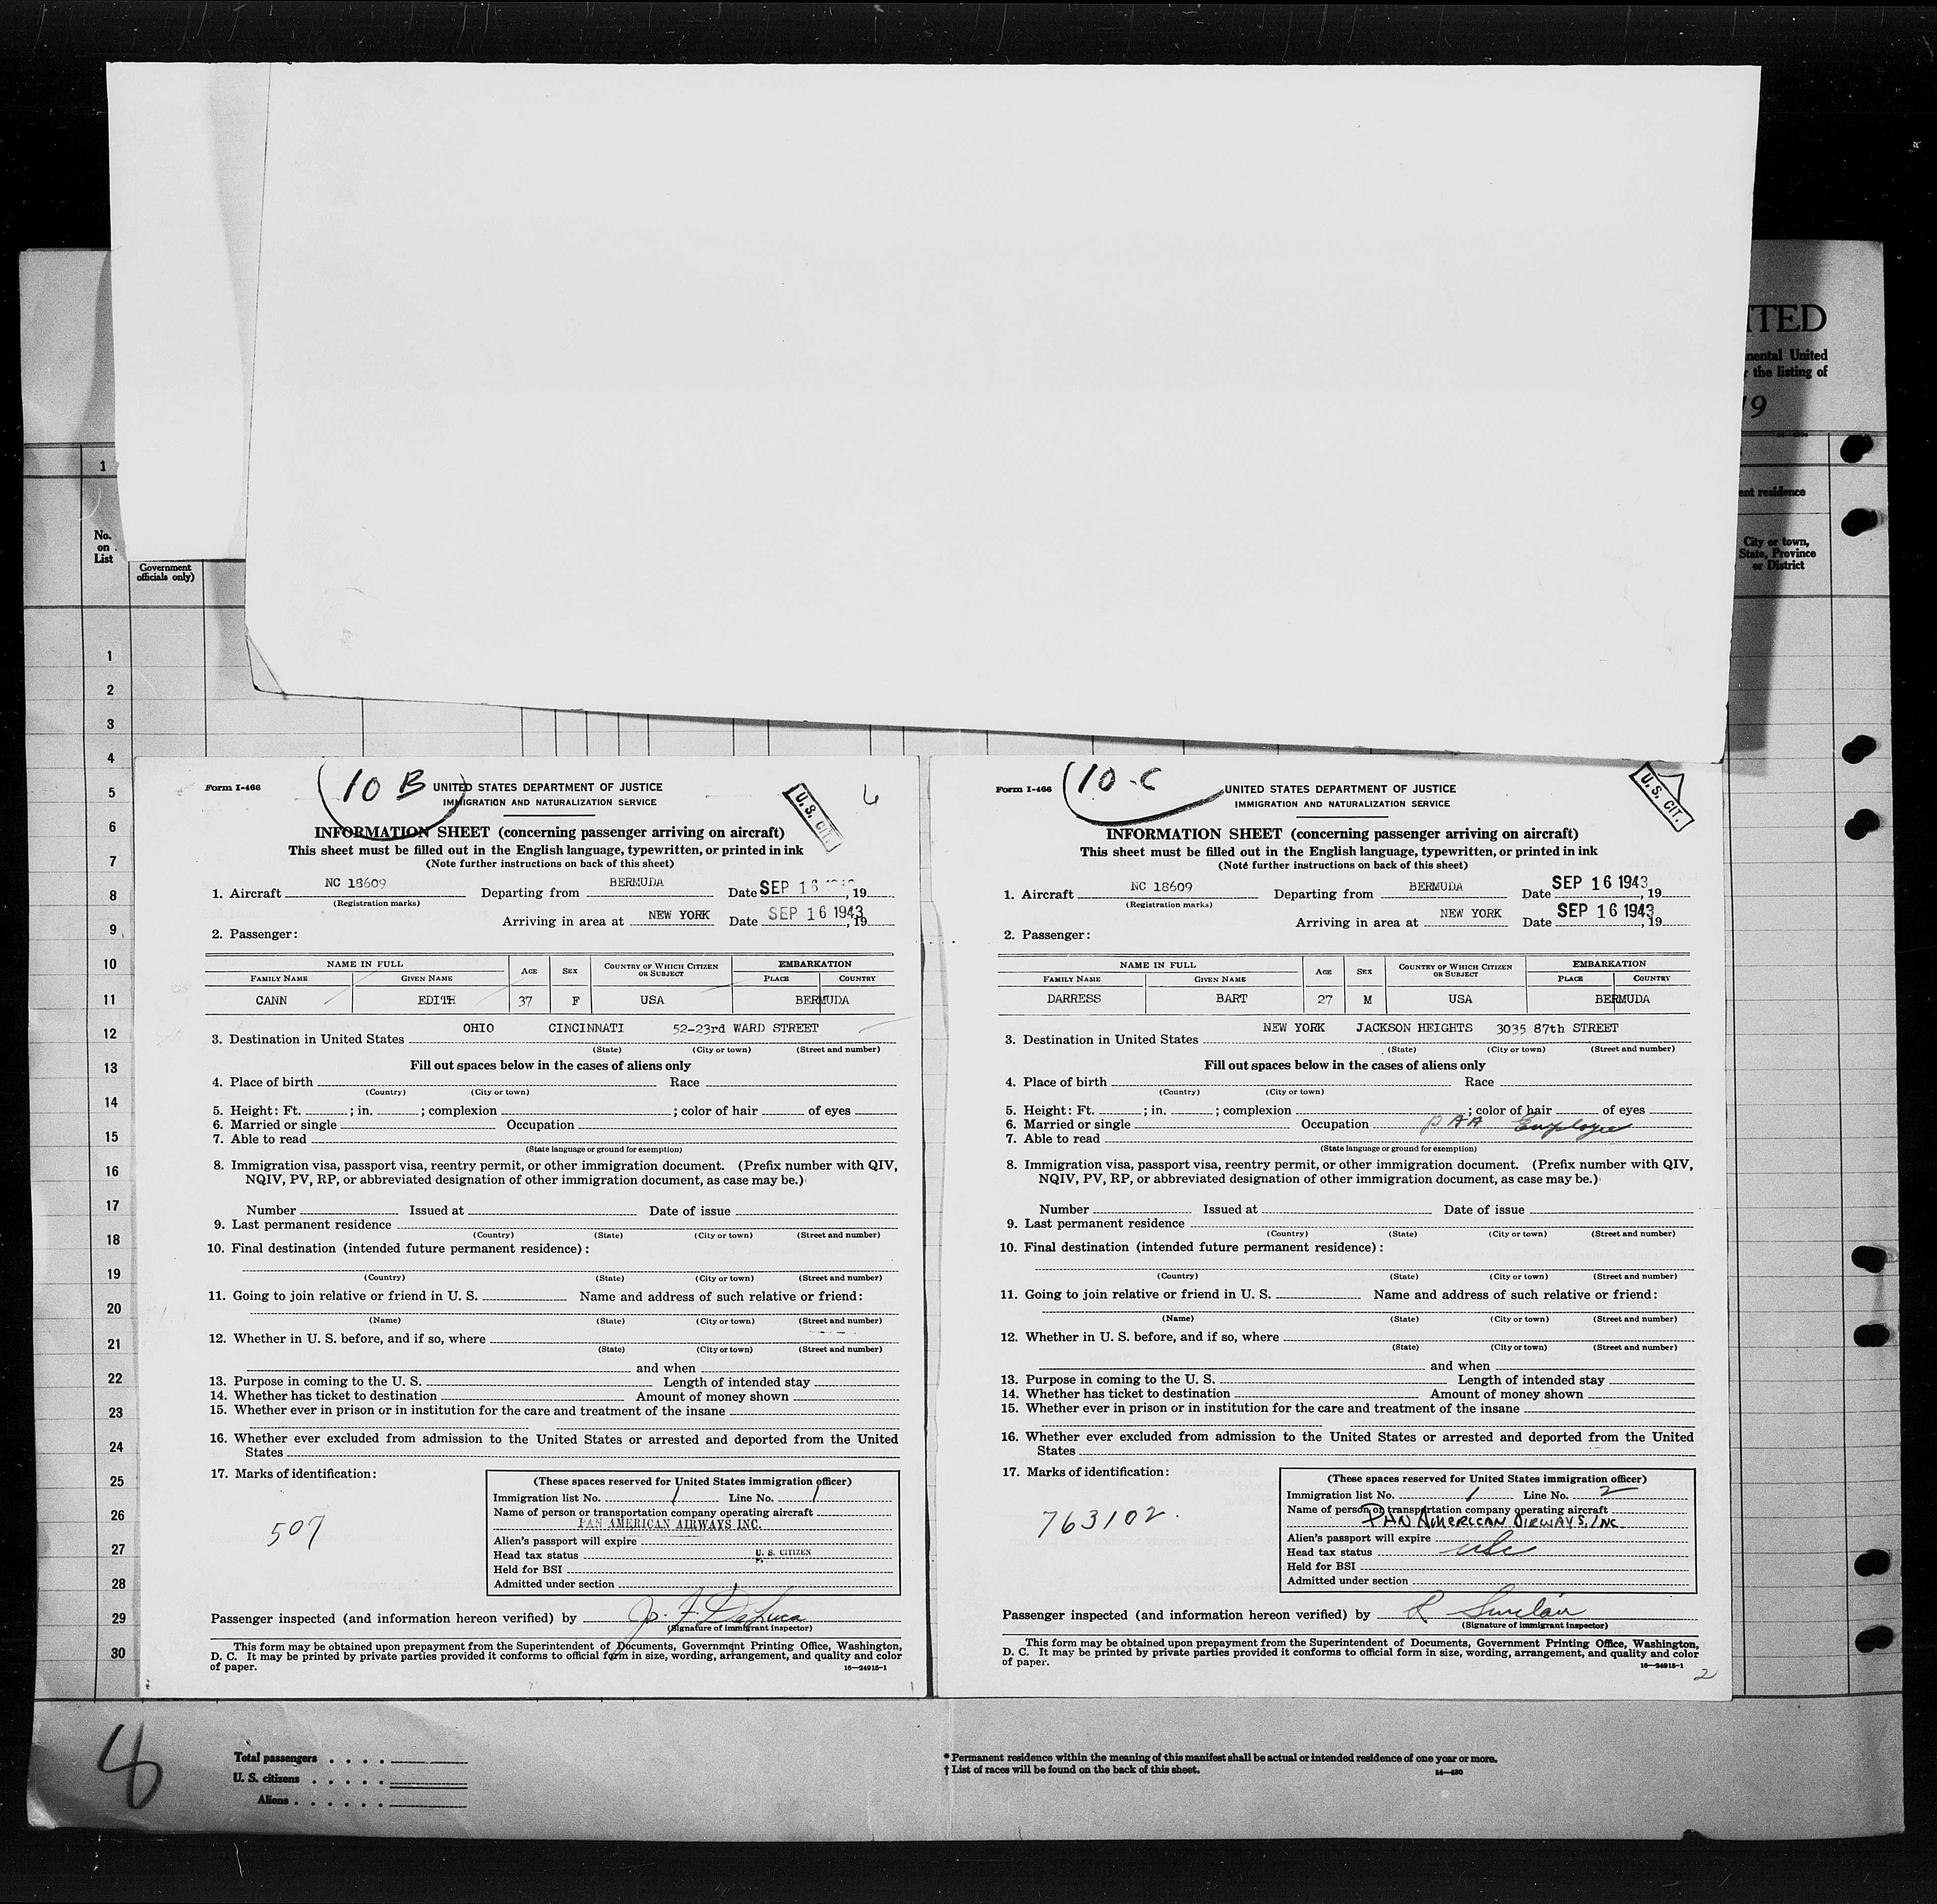 ITED
nental United
r the listing of
19
1
ent residence
No.
on
List
City or town,
State, Province
or District
Government
officials only)
1
2
3
4
5
6
7
8
9
10
11
12
13
14
15
16
17
18
19
20
21
22
23
24
25
26
27
28
29
30
Form I-466
10 B
UNITED STATES DEPARTMENT OF JUSTICE
IMMIGRATION AND NATURALIZATION SERVICE
U. S. CIT.
6
INFORMATION SHEET (concerning passenger arriving on aircraft)
This sheet must be filled out in the English language, typewritten, or printed in ink
(Note further instructions on back of this sheet)
1. Aircraft NC 18609 Departing from BERMUDA Date SEP 16 , 19
(Registration marks)
Arriving in area at NEW YORK Date SEP 16 1943, 19
2. Passenger:
NAME IN FULL AGE SEX COUNTRY OF WHICH CITIZEN OR SUBJECT EMBARKATION
FAMILY NAME GIVEN NAME PLACE COUNTRY
CANN EDITH 37 F USA BERMUDA
OHIO CINCINNATI 52-23rd WARD STREET
3. Destination in United States
(State) (City or town) (Street and number)
Fill out spaces below in the cases of aliens only
4. Place of birth Race
(Country) (City or town)
5. Height: Ft. ; in. ; complexion ; color of hair of eyes
6. Married or single Occupation
7. Able to read
(State language or ground for exemption)
8. Immigration visa, passport visa, reentry permit, or other immigration document. (Prefix number with QIV,
NQIV, PV, RP, or abbreviated designation of other immigration document, as case may be.)
Number Issued at Date of issue
9. Last permanent residence
(Country) (State) (City or town) (Street and number)
10. Final destination (intended future permanent residence):
(Country) (State) (City or town) (Street and number)
11. Going to join relative or friend in U. S. Name and address of such relative or friend:
(Name) (State) (City or town) (Street and number)
12. Whether in U. S. before, and if so, where
(State) (City or town) (Street and number)
and when
13. Purpose in coming to the U. S. Length of intended stay
14. Whether has ticket to destination Amount of money shown
15. Whether ever in prison or in institution for the care and treatment of the insane
16. Whether ever excluded from admission to the United States or arrested and deported from the United
States
17. Marks of identification:
507
(These spaces reserved for United States immigration officer)
Immigration list No. 1 Line No. 1
Name of person or transportation company operating aircraft
PAN AMERICAN AIRWAYS INC.
Alien's passport will expire
Head tax status U. S. CITIZEN
Held for BSI
Admitted under section
Passenger inspected (and information hereon verified) by Jo. F. DeLuca
(Signature of immigrant inspector)
This form may be obtained upon prepayment from the Superintendent of Documents, Government Printing Office, Washington,
D. C. It may be printed by private parties provided it conforms to official form in size, wording, arrangement, and quality and color
of paper.
16—24915-1
Form I-466
10-C
UNITED STATES DEPARTMENT OF JUSTICE
IMMIGRATION AND NATURALIZATION SERVICE
U. S. CIT.
INFORMATION SHEET (concerning passenger arriving on aircraft)
This sheet must be filled out in the English language, typewritten, or printed in ink
(Note further instructions on back of this sheet)
1. Aircraft NC 18609 Departing from BERMUDA Date SEP 16 1943, 19
(Registration marks)
Arriving in area at NEW YORK Date SEP 16 1943, 19
2. Passenger:
NAME IN FULL AGE SEX COUNTRY OF WHICH CITIZEN OR SUBJECT EMBARKATION
FAMILY NAME GIVEN NAME PLACE COUNTRY
DARRESS BART 27 M USA BERMUDA
NEW YORK JACKSON HEIGHTS 3035 87th STREET
3. Destination in United States
(State) (City or town) (Street and number)
Fill out spaces below in the cases of aliens only
4. Place of birth Race
(Country) (City or town)
5. Height: Ft. ; in. ; complexion ; color of hair of eyes
6. Married or single Occupation PAA Employee
7. Able to read
(State language or ground for exemption)
8. Immigration visa, passport visa, reentry permit, or other immigration document. (Prefix number with QIV,
NQIV, PV, RP, or abbreviated designation of other immigration document, as case may be.)
Number Issued at Date of issue
9. Last permanent residence
(Country) (State) (City or town) (Street and number)
10. Final destination (intended future permanent residence):
(Country) (State) (City or town) (Street and number)
11. Going to join relative or friend in U. S. Name and address of such relative or friend:
(Name) (State) (City or town) (Street and number)
12. Whether in U. S. before, and if so, where
(State) (City or town) (Street and number)
and when
13. Purpose in coming to the U. S. Length of intended stay
14. Whether has ticket to destination Amount of money shown
15. Whether ever in prison or in institution for the care and treatment of the insane
16. Whether ever excluded from admission to the United States or arrested and deported from the United
States
17. Marks of identification:
763102.
(These spaces reserved for United States immigration officer)
Immigration list No. 1 Line No. 2
Name of person or transportation company operating aircraft
PAN AMERICAN AIRWAYS, INC.
Alien's passport will expire
Head tax status usc
Held for BSI
Admitted under section
Passenger inspected (and information hereon verified) by R Sinclair
(Signature of immigrant inspector)
This form may be obtained upon prepayment from the Superintendent of Documents, Government Printing Office, Washington,
D. C. It may be printed by private parties provided it conforms to official form in size, wording, arrangement, and quality and color
of paper.
16—24915-1
2
8
Total passengers . . . .
U. S. citizens . . . . .
Aliens . . . . . .
* Permanent residence within the meaning of this manifest shall be actual or intended residence of one year or more.
† List of races will be found on the back of this sheet.
14—430